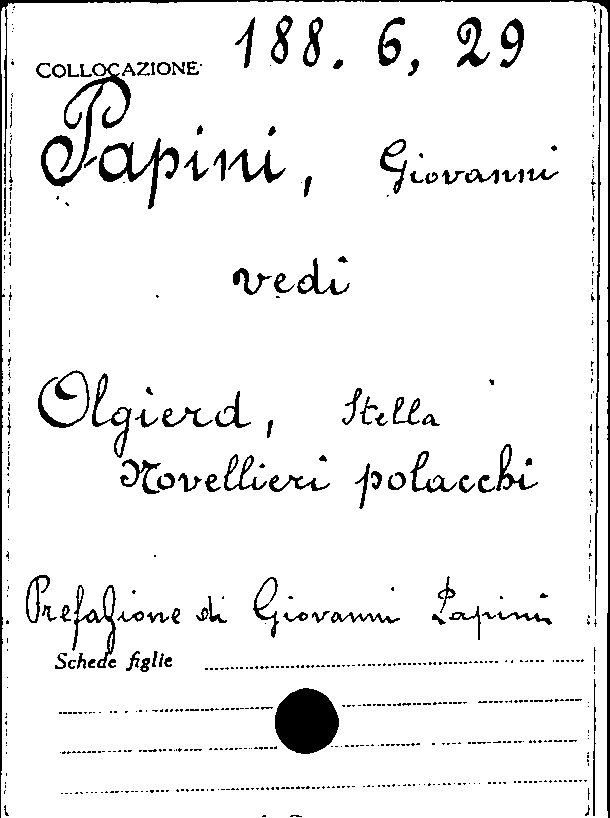 COLLOCAZIONE 188. 6, 29
Papini, Giovanni
vedi
Olgierd, Stella
Novellieri polacchi
Prefazione di Giovanni Papini
Schede figlie